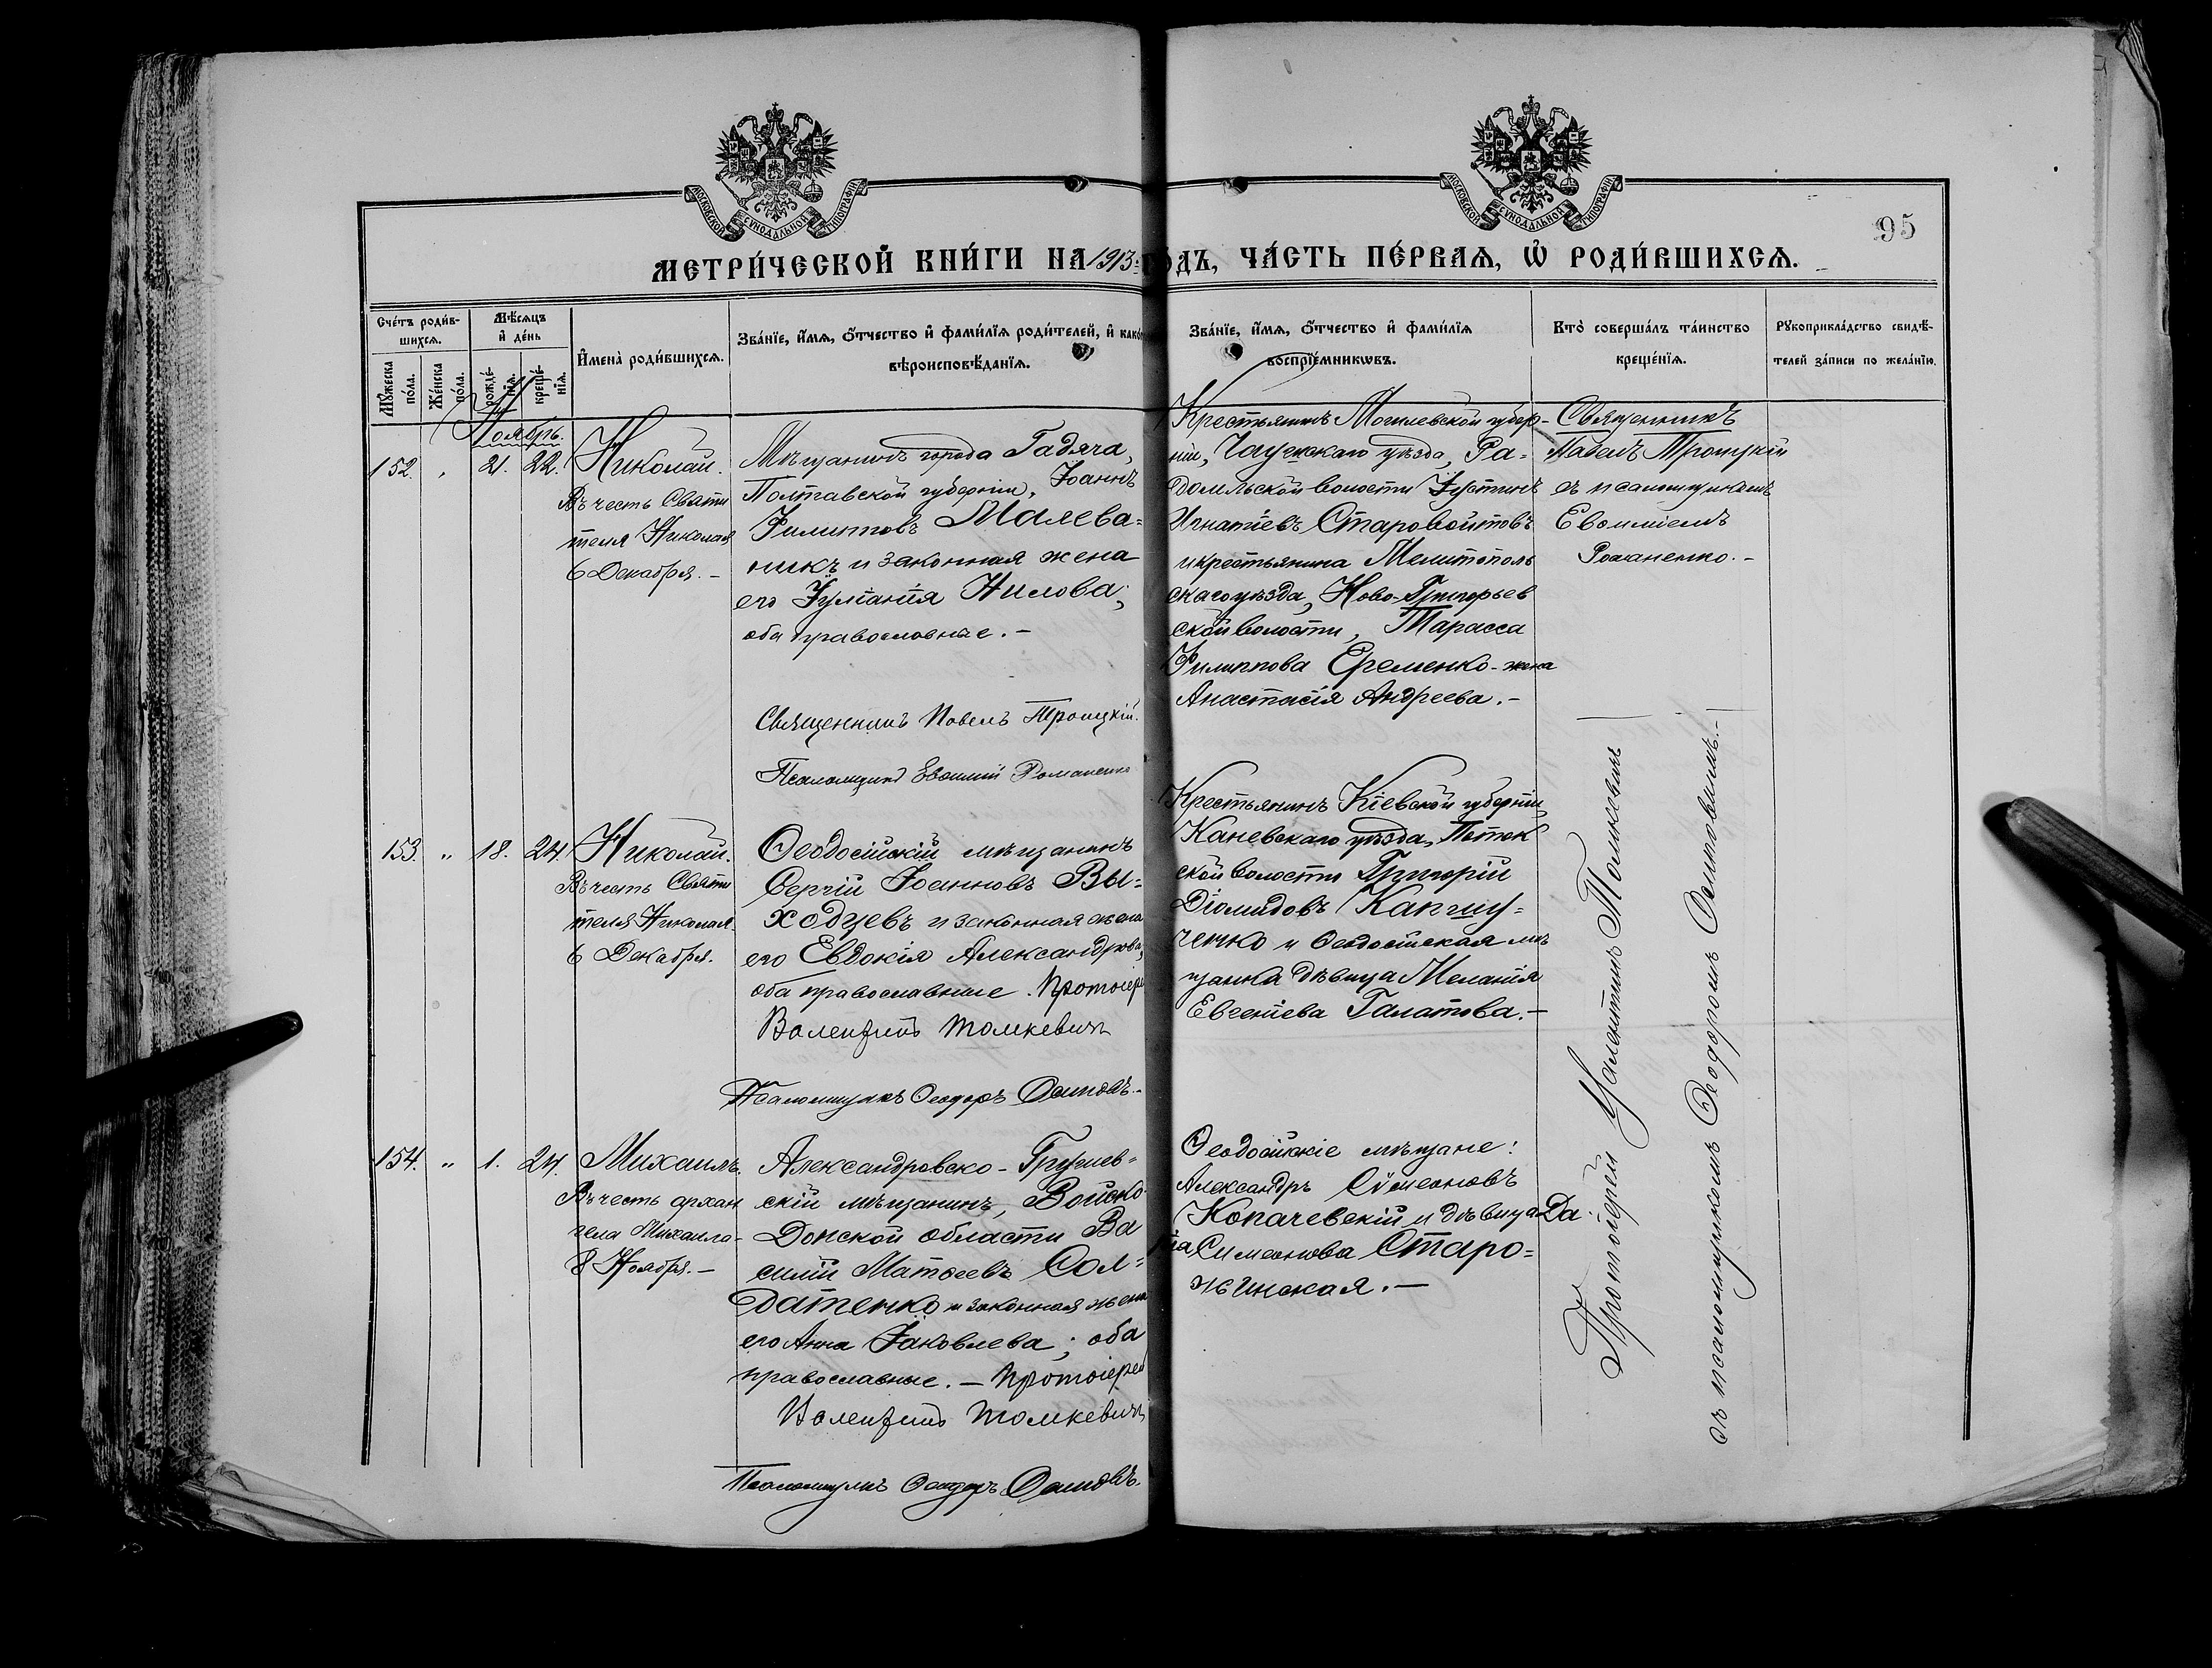 МОСКОВСКОЙ СѴНОДАЛЬНОЙ ТИПОГРАФІИ
МОСКОВСКОЙ СѴНОДАЛЬНОЙ ТИПОГРАФІИ
95
МЕТРИ́ЧЕСКОЙ КНИ́ГИ НА 1913 ГОДЪ, ЧА́СТЬ ПЕ́РВАѦ, Ѡ РОДИ́ВШИХСѦ.
Сче́тъ роди́в-
шихсѧ.
Мꙋ́жеска
по́ла.
Же́нска
по́ла.
Мѣ́сѧцъ
и҆ де́нь
рожде́-
нїѧ.
креще́-
нїѧ.
И҆мена̀ роди́вшихсѧ.
Зва́нїе, и҆́мѧ, ѻ҆́тчество и҆ фами́лїѧ роди́телей, и҆ како́
вѣроисповѣ́данїѧ.
Зва́нїе, и҆́мѧ, ѻ҆́тчество и҆ фами́лїѧ
воспрїе́мникѡвъ.
Кто̀ соверша́лъ та́инство
креще́нїѧ.
Рꙋкоприкла́дство свидѣ́-
телей за́писи по жела́нїю.
Ноябрь.
152. " 21. 22. Николай.
Въ честь Святи
теля Николая
6 Декабря. -
Мѣщанинъ города Гадяча,
Полтавской губерніи, Іоаннъ
Филипповъ Малева=
никъ и законная жена
его Іуліанія Нилова;
оба православные. -
Священникъ Павелъ Троицкій.
Псаломщикъ Евѳимій Романенко
Крестьянинъ Могилевской губер-
ніи, Чаусскаго уѣзда, Ра-
домльской волости Іустинъ
Игнатіевъ Старовойтовъ
и крестьянина Мелитополь
скаго уѣзда, Ново-Григорьев
ской волости, Тарасса
Филиппова Еременко - жена
Анастасія Андреева. -
Священникъ
Павелъ Троицкій
съ псаломщикомъ
Евѳиміемъ
Романенко. -
153. " 18. 24. Николай.
Въ честь Святи
теля Николая
6 Декабря.
Ѳеодосійскій мѣщанинъ
Сергій Іоанновъ Вы=
ходцевъ и законная жена
его Евдокія Александрова,
оба православные. Протоіерей
Валентинъ Томкевичъ
Псаломщикъ Ѳеодоръ
Крестьянинъ Кіевской губерніи,
Каневскаго уѣзда, Поток
ской волости Григорій
Діомидовъ
ченко и Ѳеодосійская мѣ
щанка дѣвица Меланія
Евгеніева Галатова. -
154. " 1. 24. Михаилъ.
Въ честь архан
гела Михаила
8 Ноября. -
Александровско-Грушев=
скій мѣщанинъ, Войско
Донской области Ва
силій Матѳеевъ Сол=
датенко и законная жена
его Анна Іаковлева; оба
православные. - Протоіерей
Валентинъ Томкевичъ
Псаломщикъ Ѳеодоръ
Ѳеодосійскіе мѣщане:
Александръ Сѵмеоновъ
Копачевскій и дѣвица Да
рія Симеонова Старо=
жинская. -
Протоіерей Валентинъ Томкевичъ
съ псаломщикомъ Ѳеодоромъ